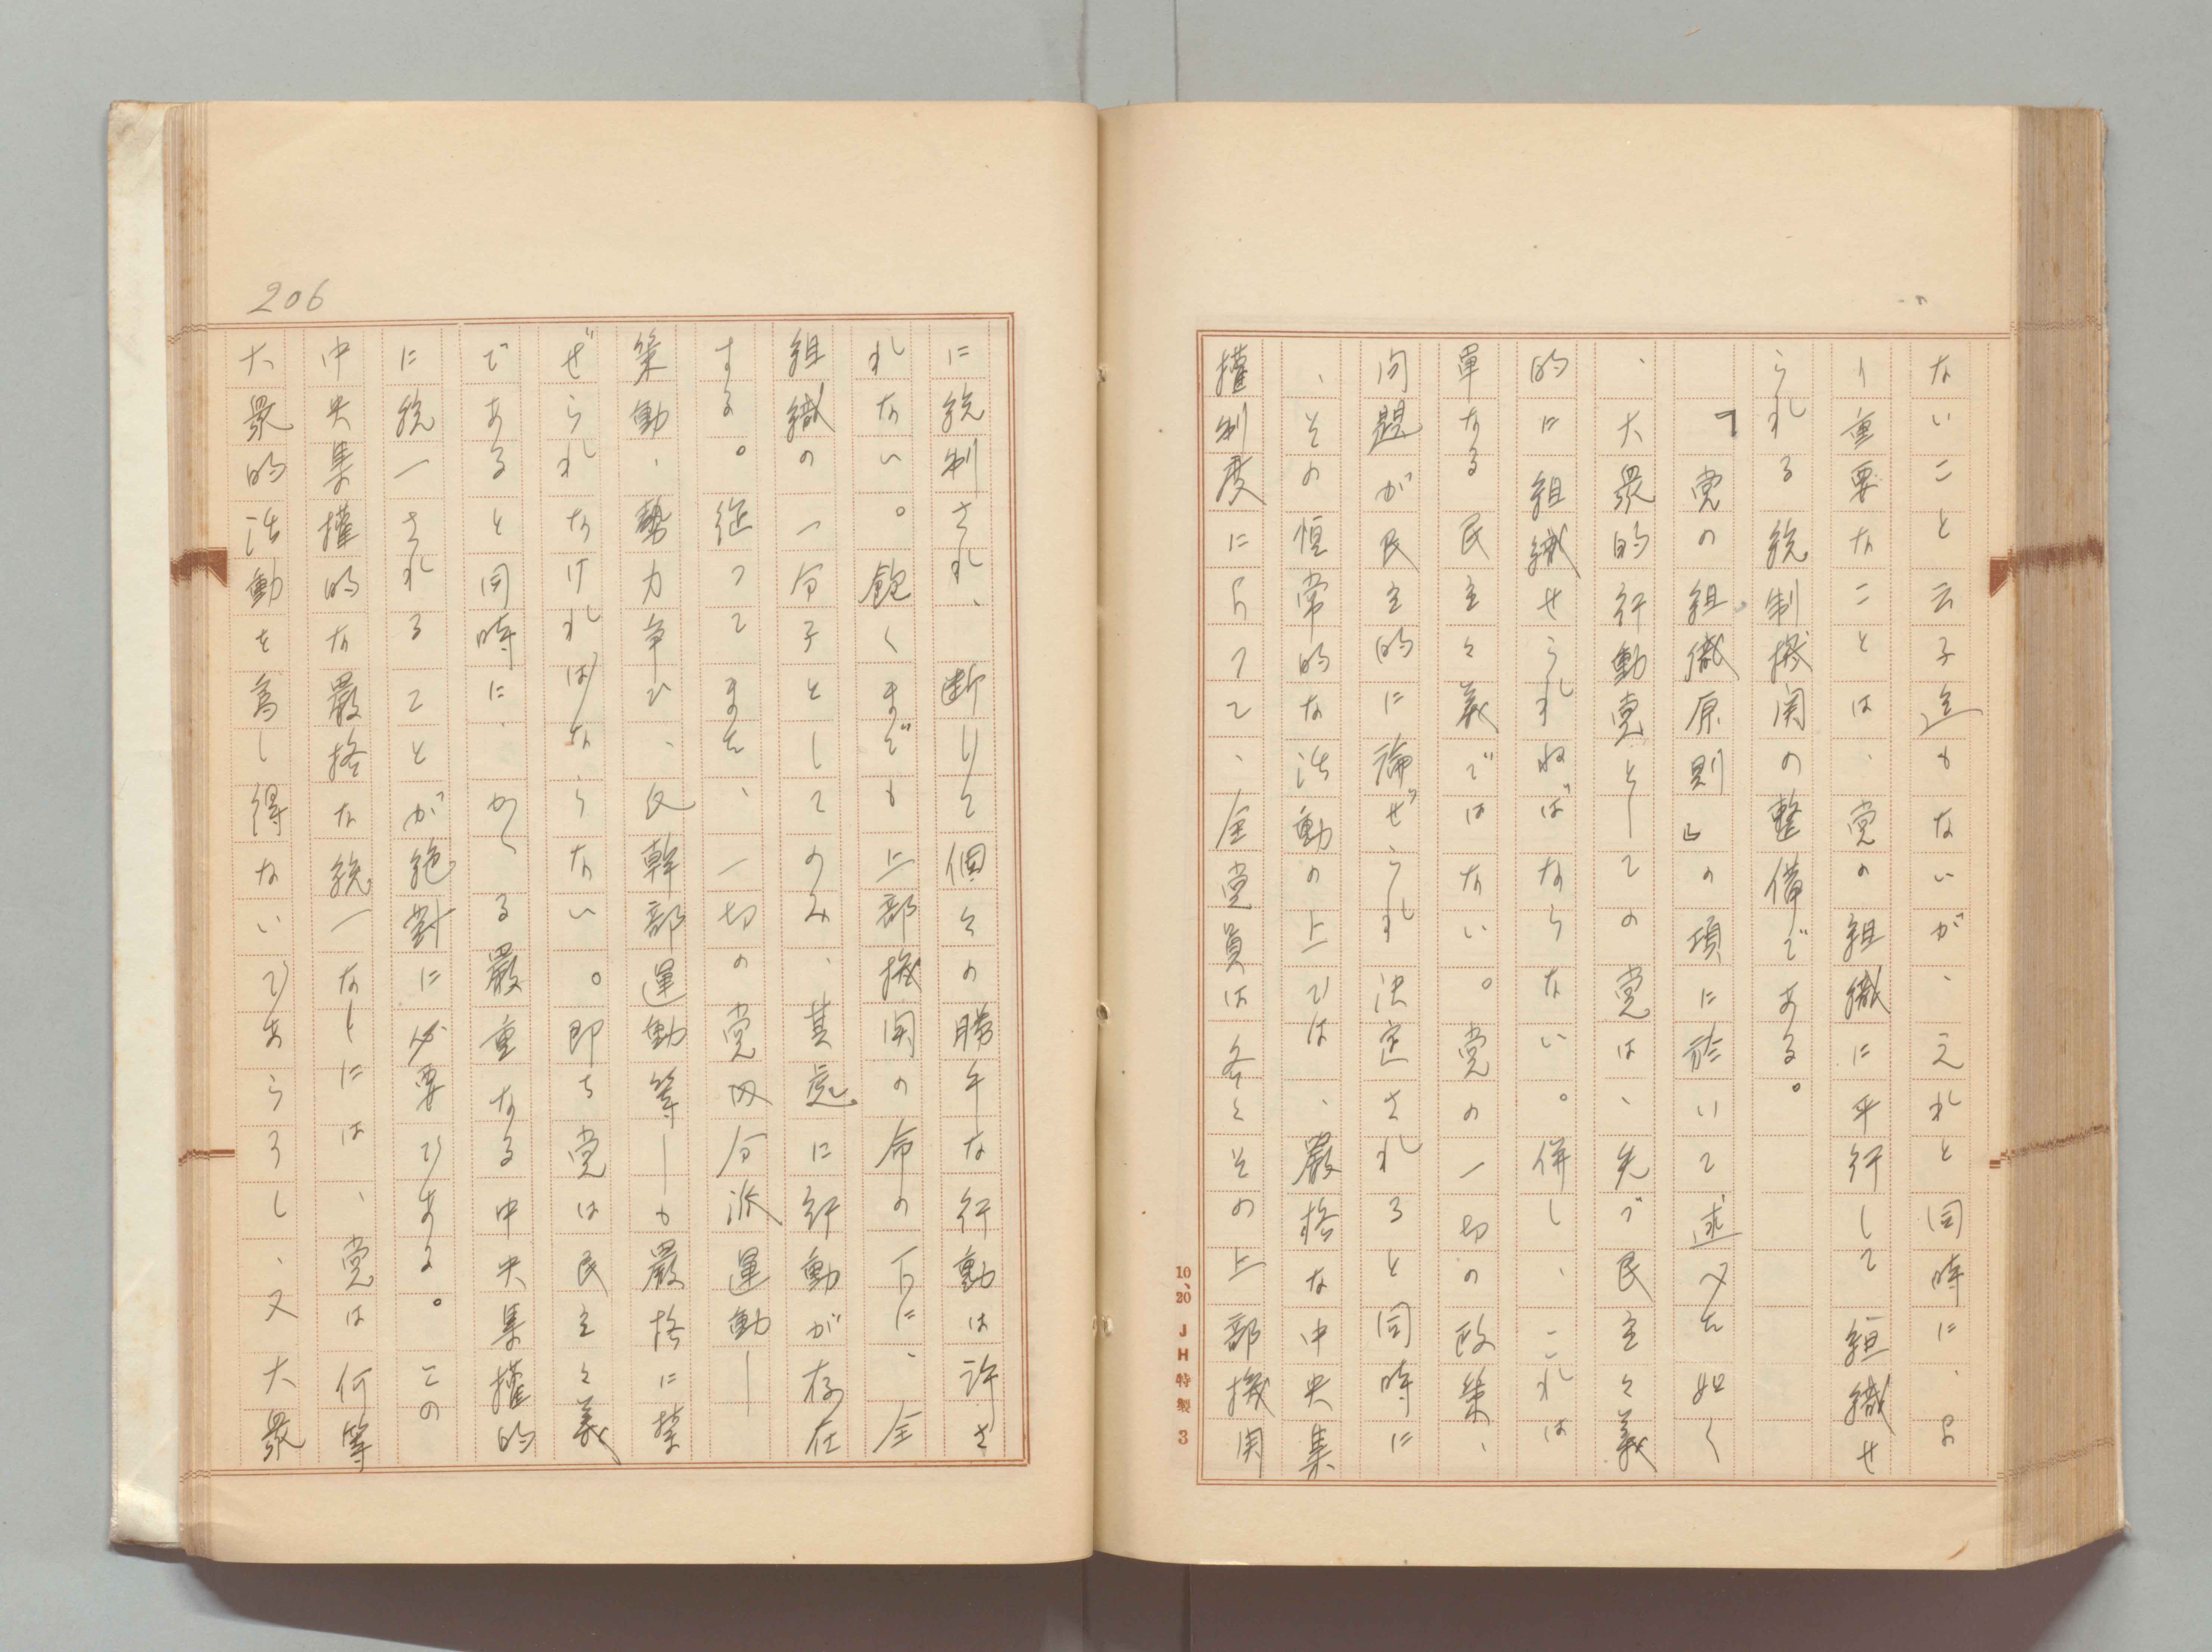 ないことと云ふ迄もないが、これと同時に、よ
り重要なことは、党の組織に平行して組織せ
られる統制機関の整備である。
「党の組織原則」の項に於いて述べた如く
、大衆的行動党としての党は、先づ民主々義
的に組織せられねばならない。併し、これは
単なる民主々義ではない。党の一切の政策、
問題が民主的に論ぜられ決定されると同時に
、その恒常的な活動の上では、厳格な中央集
権制度によって、全党員は各々その上部機関
に統制され、断じて個々の勝手な行動は許さ
れない。飽くまでも上部機関の命の下に、全
組織の一分子としてのみ、其處に行動が存在
する。従つてまた、一切の党内分派運動―
策動、勢力争ひ、反幹部運動等―も厳格に禁
ぜられなければならない。即ち党は民主々義
であると同時に、かゝる厳重なる中央集權的
に統一されることが絶對に必要である。この
中央集權的な厳格な統一なしには、党は何等
大衆的活動を為し得ないであらうし、又大衆
206
10、20 JH特製 3